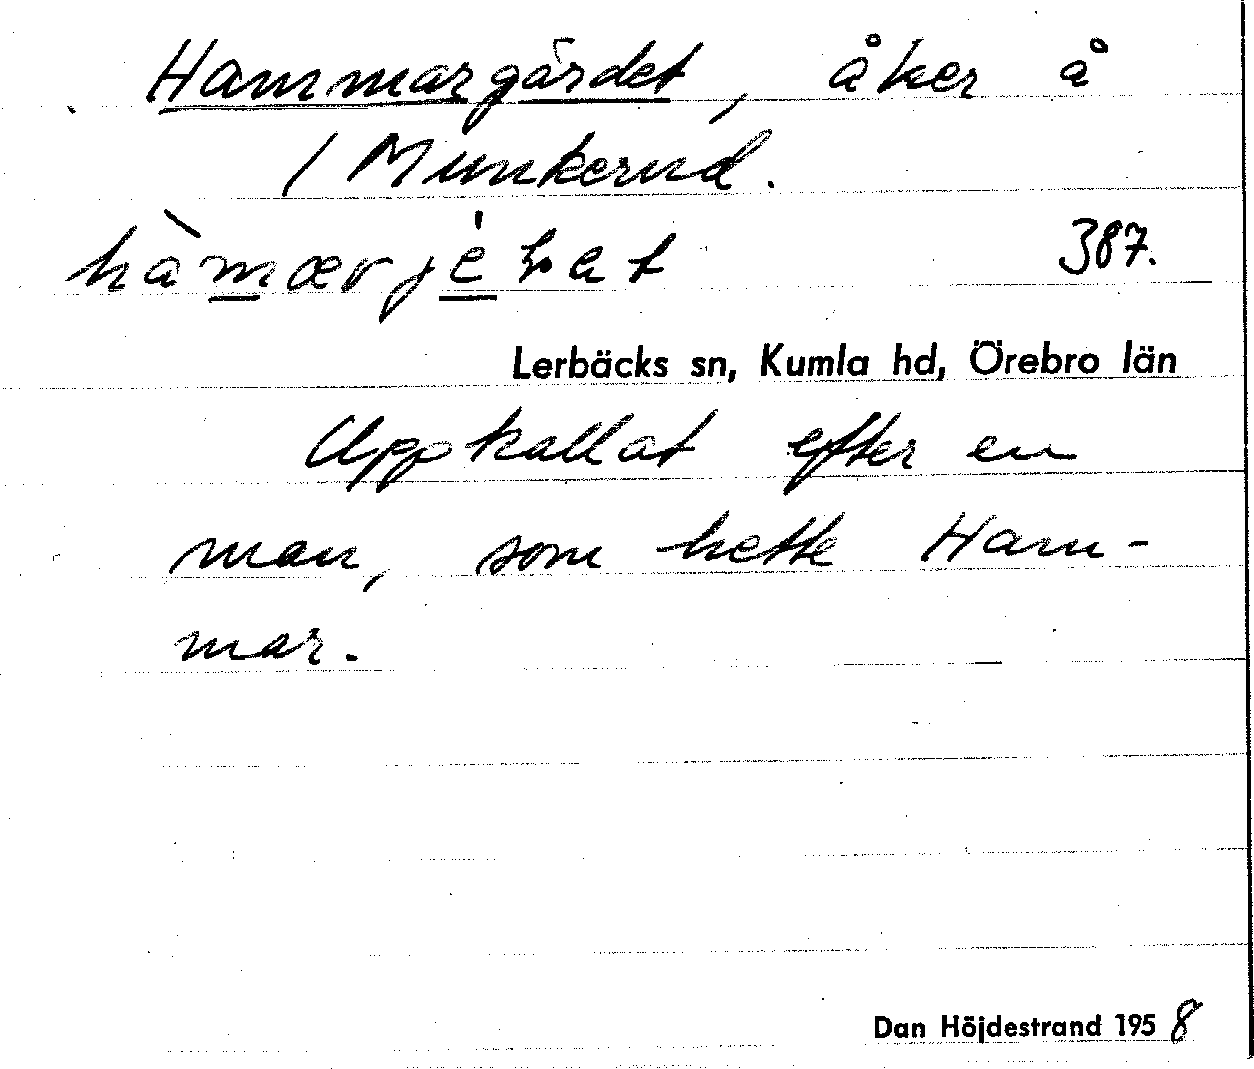 Hammargärdet, åker å
/ Munkerud.
387.
Lerbäcks sn, Kumla hd, Örebro län
Uppkallat efter en
man, som hette Ham-
mar.
Dan Höjdestrand 1958